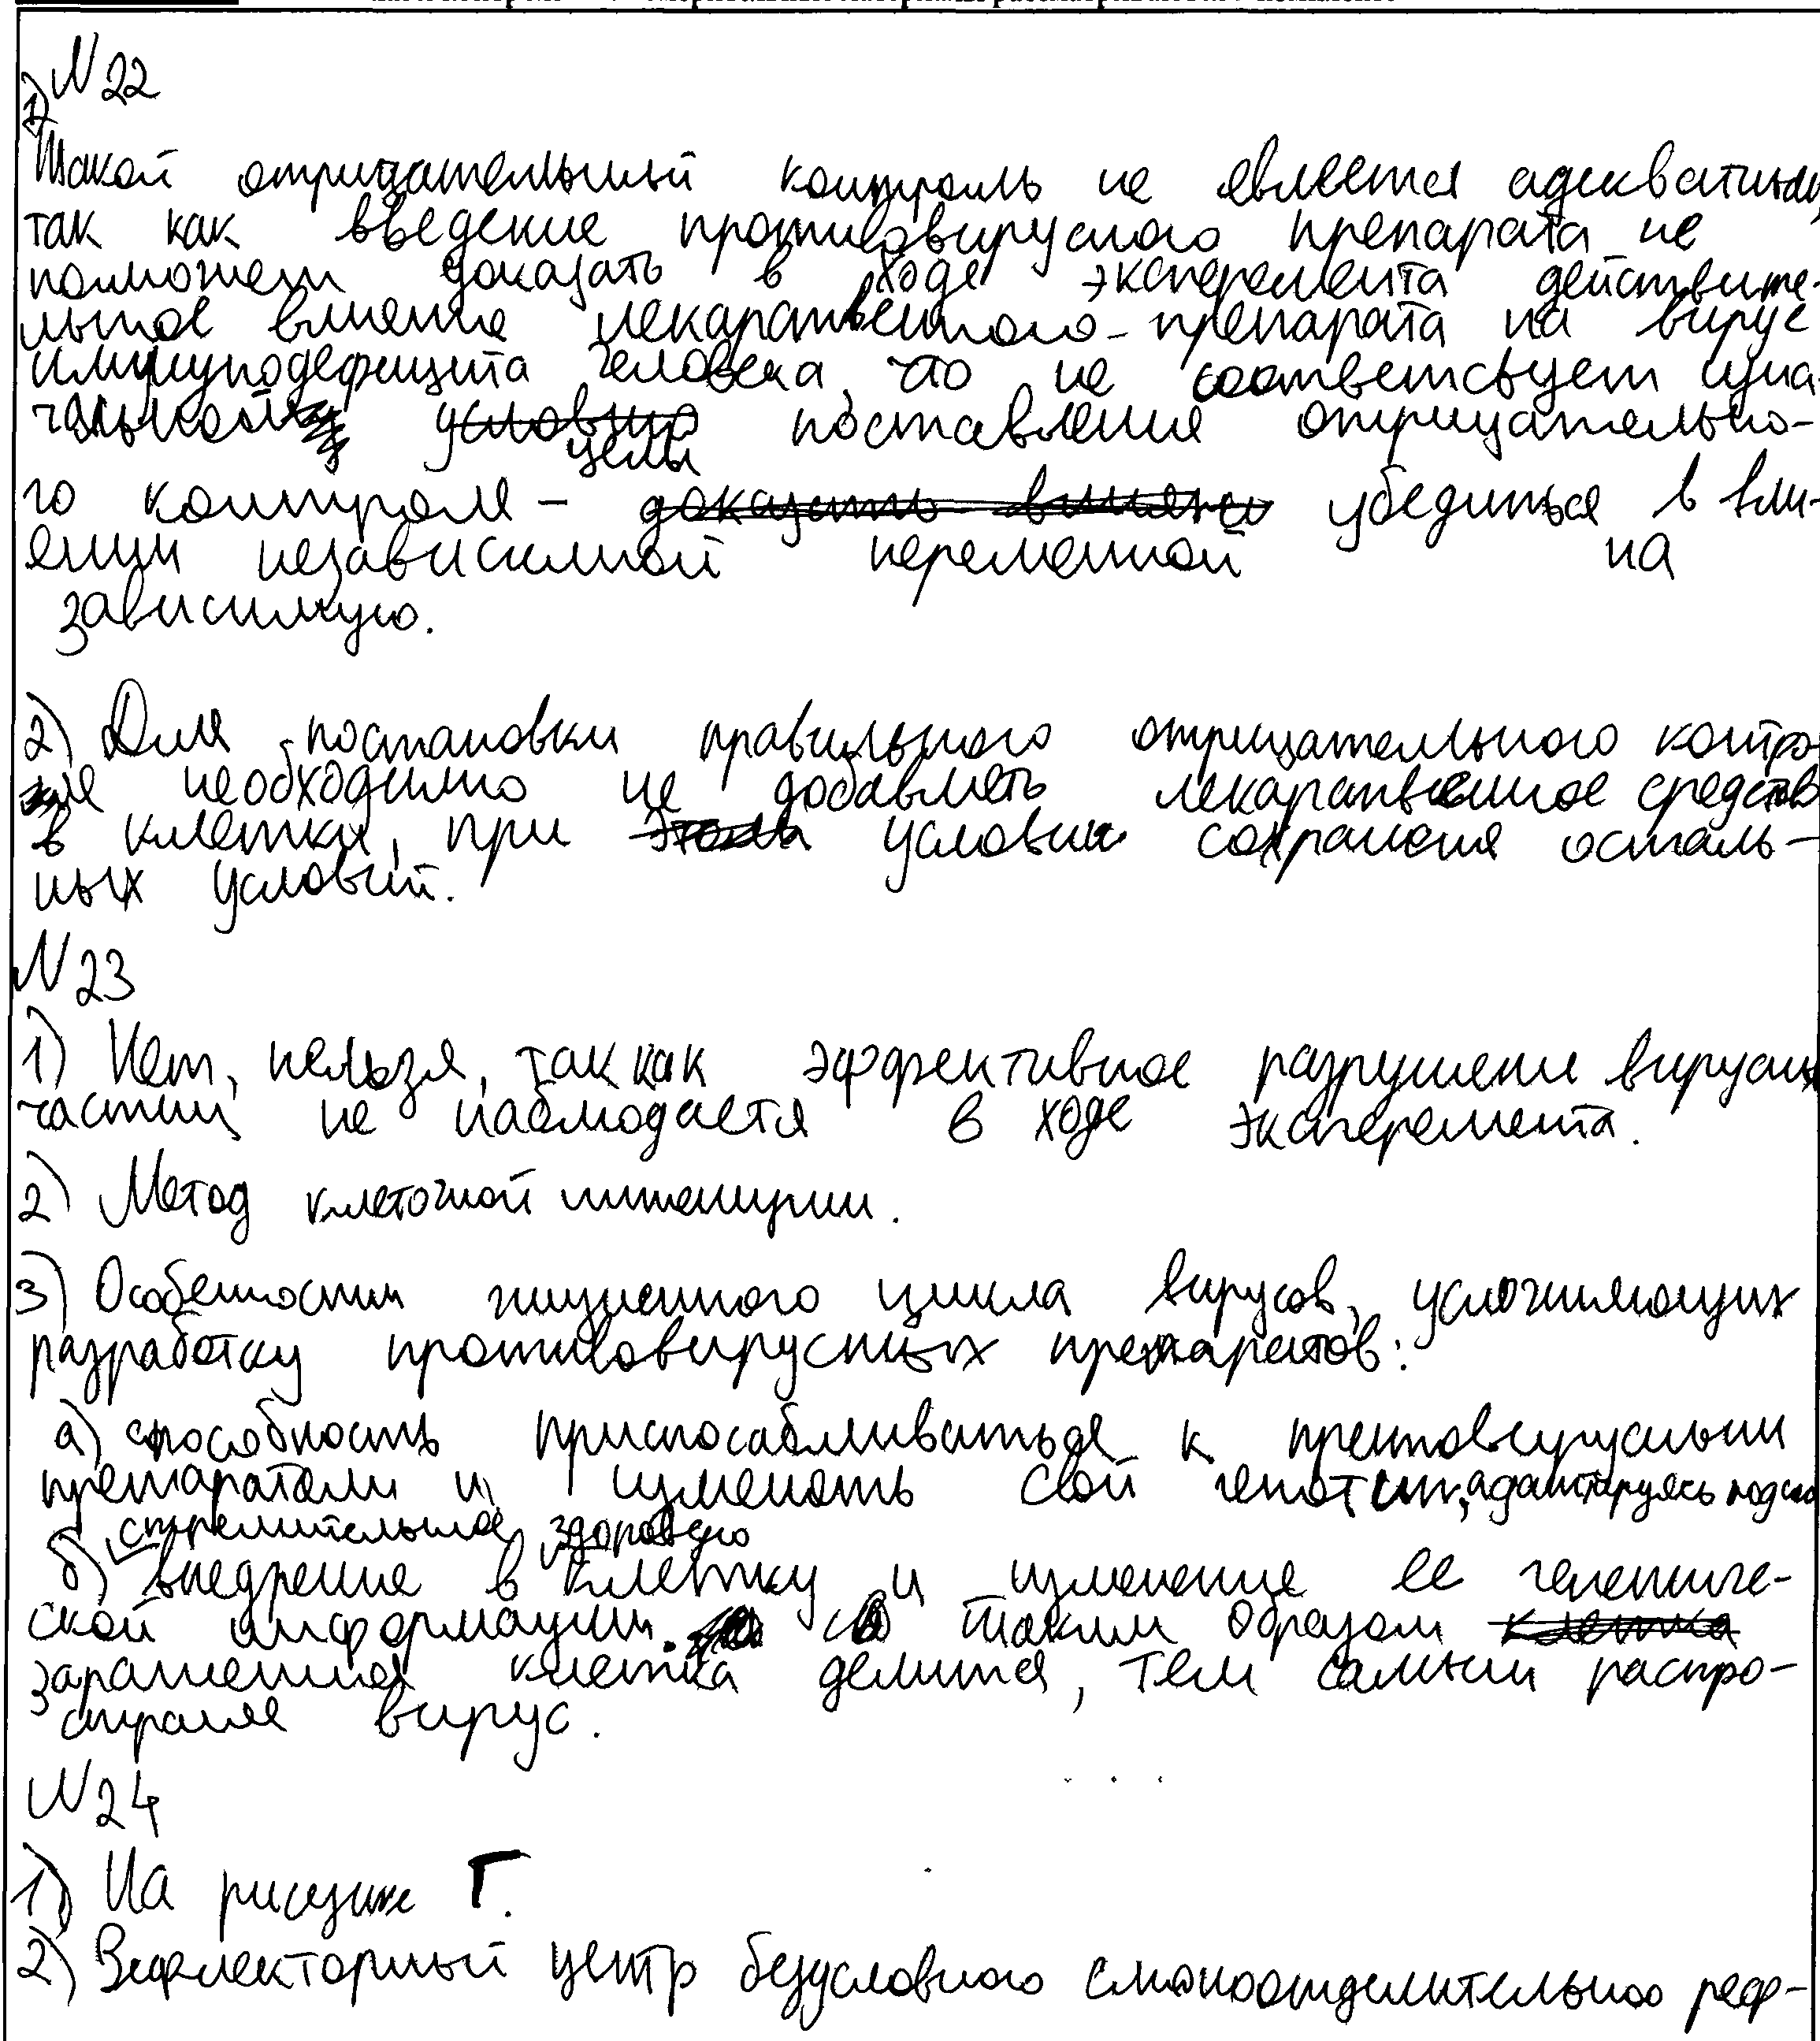 N 22
1)
Такой отрицательный контроль не является адекватным,
так как введение противовирусного препарата не
поможет доказать в ходе эксперемента действите-
льное влияние лекарственного препарата на вирус
иммунодефицита человека, что не соответсвует изна-
чальной цели поставления отрицательно-
го контроля – убедиться в вли-
янии независимой переменной на
зависимую.
2) Для постановки правильного отрицательного контро-
ля необходимо не добавлять лекарственное средство
в клетки, при условии сохранения осталь-
ных условий.
N 23
1) Нет, нельзя, так как эффективное разрушени вирусн
частиц не наблюдается в ходе эксперемента.
2) Метод клеточной инженерии.
3) Особенности жизненного цикла вирусов, усложняющих
разработку противовирусных препаратов:
а) способность приспосабливаться к
препаратам и изменять свой генотип, адаптируясь под
б) стремительное внедрение в здоровую клетку и изменение ее генетиче-
ской информации. таким образом
зараженная клетка делится, тем самым распро-
страняя вирус.
N 24
1) На рисунке Г.
2) Рефлекторный центр безусловного слюноотделительного реф-